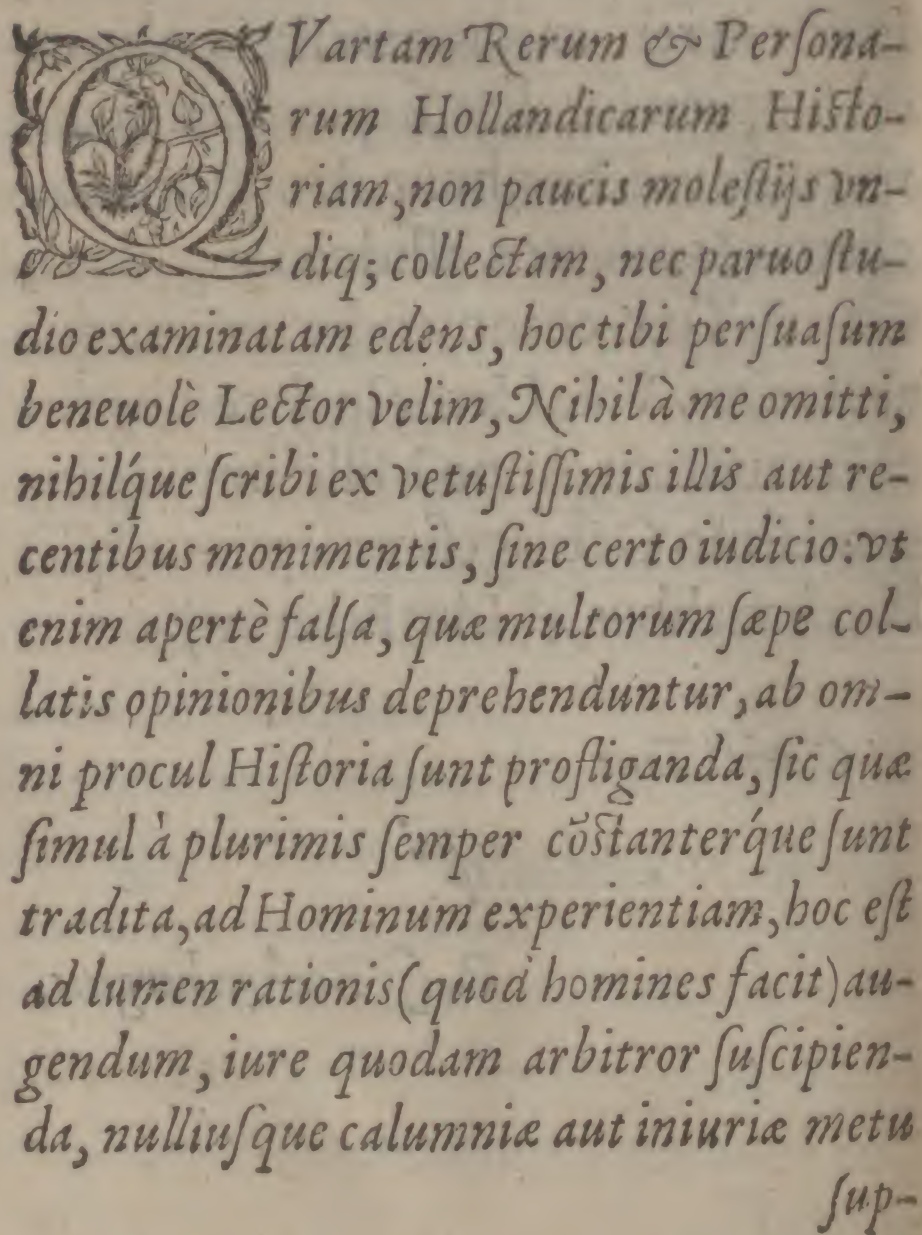 QVartam Rerum & Perſona-
rum Hollandicarum Hiſto-
riam, non paucis moleſtijs vn-
diq; collectam, nec paruo ſtu-
dio examinatam edens, hoc tibi perſuaſum
beneuolè Lector velim, Nihil à me omitti,
nihilq́ue ſcribi ex vetuſtiſſimis illis aut re-
centibus monimentis, ſine certo iudicio: vt
enim apertè falſa, quæ multorum ſæpe col-
latis opinionibus deprehenduntur, ab om-
ni procul Hiſtoria ſunt profliganda, ſic quæ
ſimul à plurimis ſemper cōſtanterq́ue ſunt
tradita, ad Hominum experientiam, hoc eſt
ad lumen rationis (quod homines facit) au-
gendum, iure quodam arbitror ſuſcipien-
da, nulliuſque calumniæ aut iniuriæ metu
ſup-